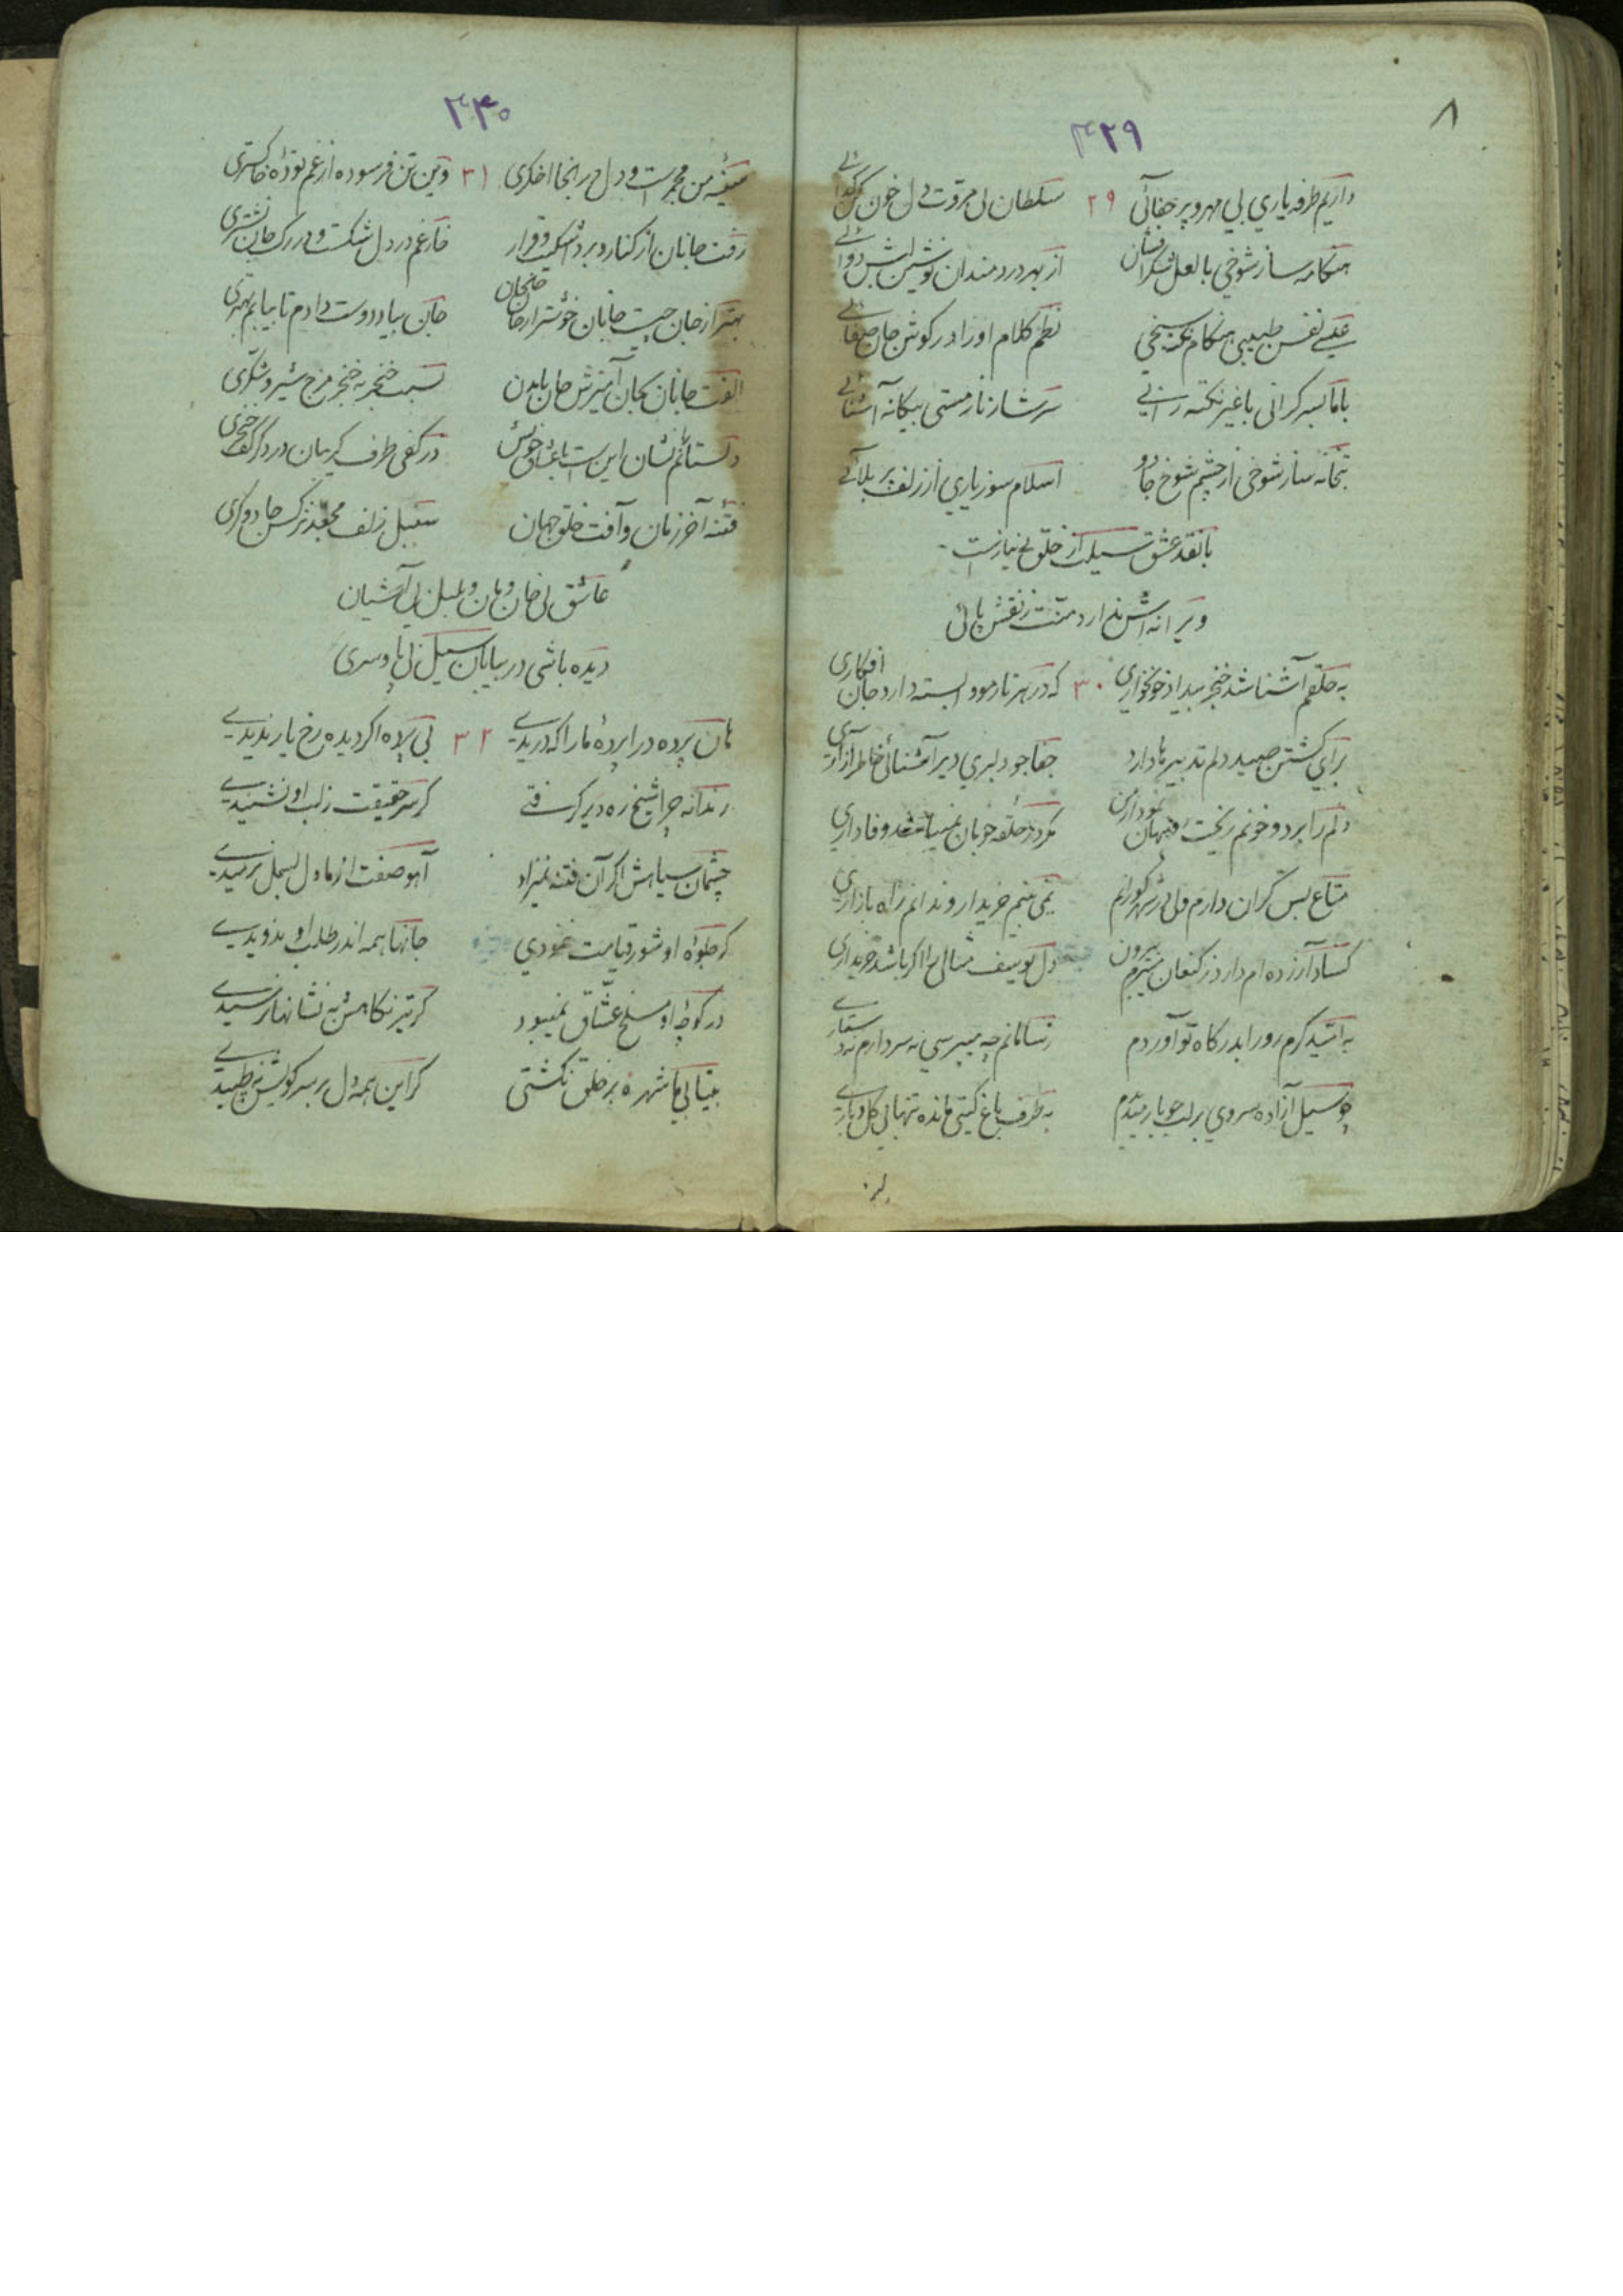 ۸
۴۲۹
داریم طرفه یاری بی مهر و پر جفائی ۲۹ سلطان بی مروت دل خون کن گدائے
هنگامه ساز شوخی بالعل شکر افشان از بهر دردمندان نوشین لبش دوائے
عیسے نفس طبیبی هنگام نکته سنجی نظم کلام او را در گوش جان صفائے
با ما بسر گرانی با غیر نکته رانے سرشار ناز مستی بیگانه آشنائے
بتخانه ساز شوخی از چشم شوخ جادو اسلام سوز یاری از زلف پر بلائے
با نقد عشق سیلت از خلق بے نیاز است
ویرانه اش ندارد منت ز نقش پائی
به حلقم آشنا شد خنجر بیداد خونخواری ۳۰ که در هر تار مو وابسته دارد جان افکاری
برای کشتن صید دلم تدبیرها دارد جفاجو دلبری دیر آشنائی خاطر آزاری
دلم را برد و خونم ریخت پنهان مگر در حلقه خوبان نمیباشد وفاداری
متاع بس گران دارم ولی در شهر کورانم نمی بینم خریدار و ندانم راه بازاری
کساد آرزده ام دارد ز کنعان میبرم بیرون دل یوسف مثالی را اگر باشد خریداری
به امید کرم رو را بدرگاه تو آوردم ز سامانم چه میپرسی نه سر دارم نه دستارے
چو سیل آزاده سروی بر لب جوبار میبیندم به طرف باغ گیتی مانده تنها بی گل و بارے
۴۳۰
سینه من مجمر است و دل در انجا اخگری ۳۱ وین تن فرسوده از غم توده خاکستری
رفت جانان از کنار و برد تسکین و قرار خار غم در دل شکست و در رگ جان نشتری
بهتر از جان چیست جانان خوشتر از جان جان بیاد دوست دادم تا بیابم بهتری
الفت جانان بجان آمیزش جان با بدن نسبت خنجر به خنجر مزج شیر و شکری
دلستانم نشان این است با عشاق خویش در کفی طرف گریبان در دگر کف خنجری
فتنه آخر زمان و آفت خلق جهان سنبل زلف مجعد نرگس جادوگری
عاشق بی خان و مان و بلبل بی آشیان
دیده باشی در بیابان سیل بی پا و سری
هان پرده در ا پرده ما را که دریدے ۳۲ بی پرده اگر دیده رخ یار ندیدے
رندانه چرا شیخ ره دیر گرفتے گر سر حقیقت ز لب او نشنیدے
چشمان سیاهش اگر آن فتنه نمیزاد آهو صفت از ما دل بسمل نرمیدے
گر جلوه او شور قیامت ننمودی جانها همه اندر طلب او ندویدے
در کوچه او مسلخ عشاق نمیبود گر تیر نگاهش به نشانها نرسیدے
بیتابی ما شهره بر خلق نگشتی گر این همه دل بر سر کویش نه طپیدے